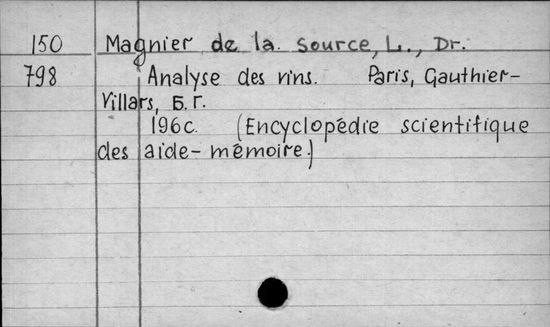 150 Magnier de la Source, L., Dr.
798 Analyse des vins. Paris, Gauthier-
Villars, Б.Г.
196с. (Encyclopédie scientifique
des aide-mémoire.)